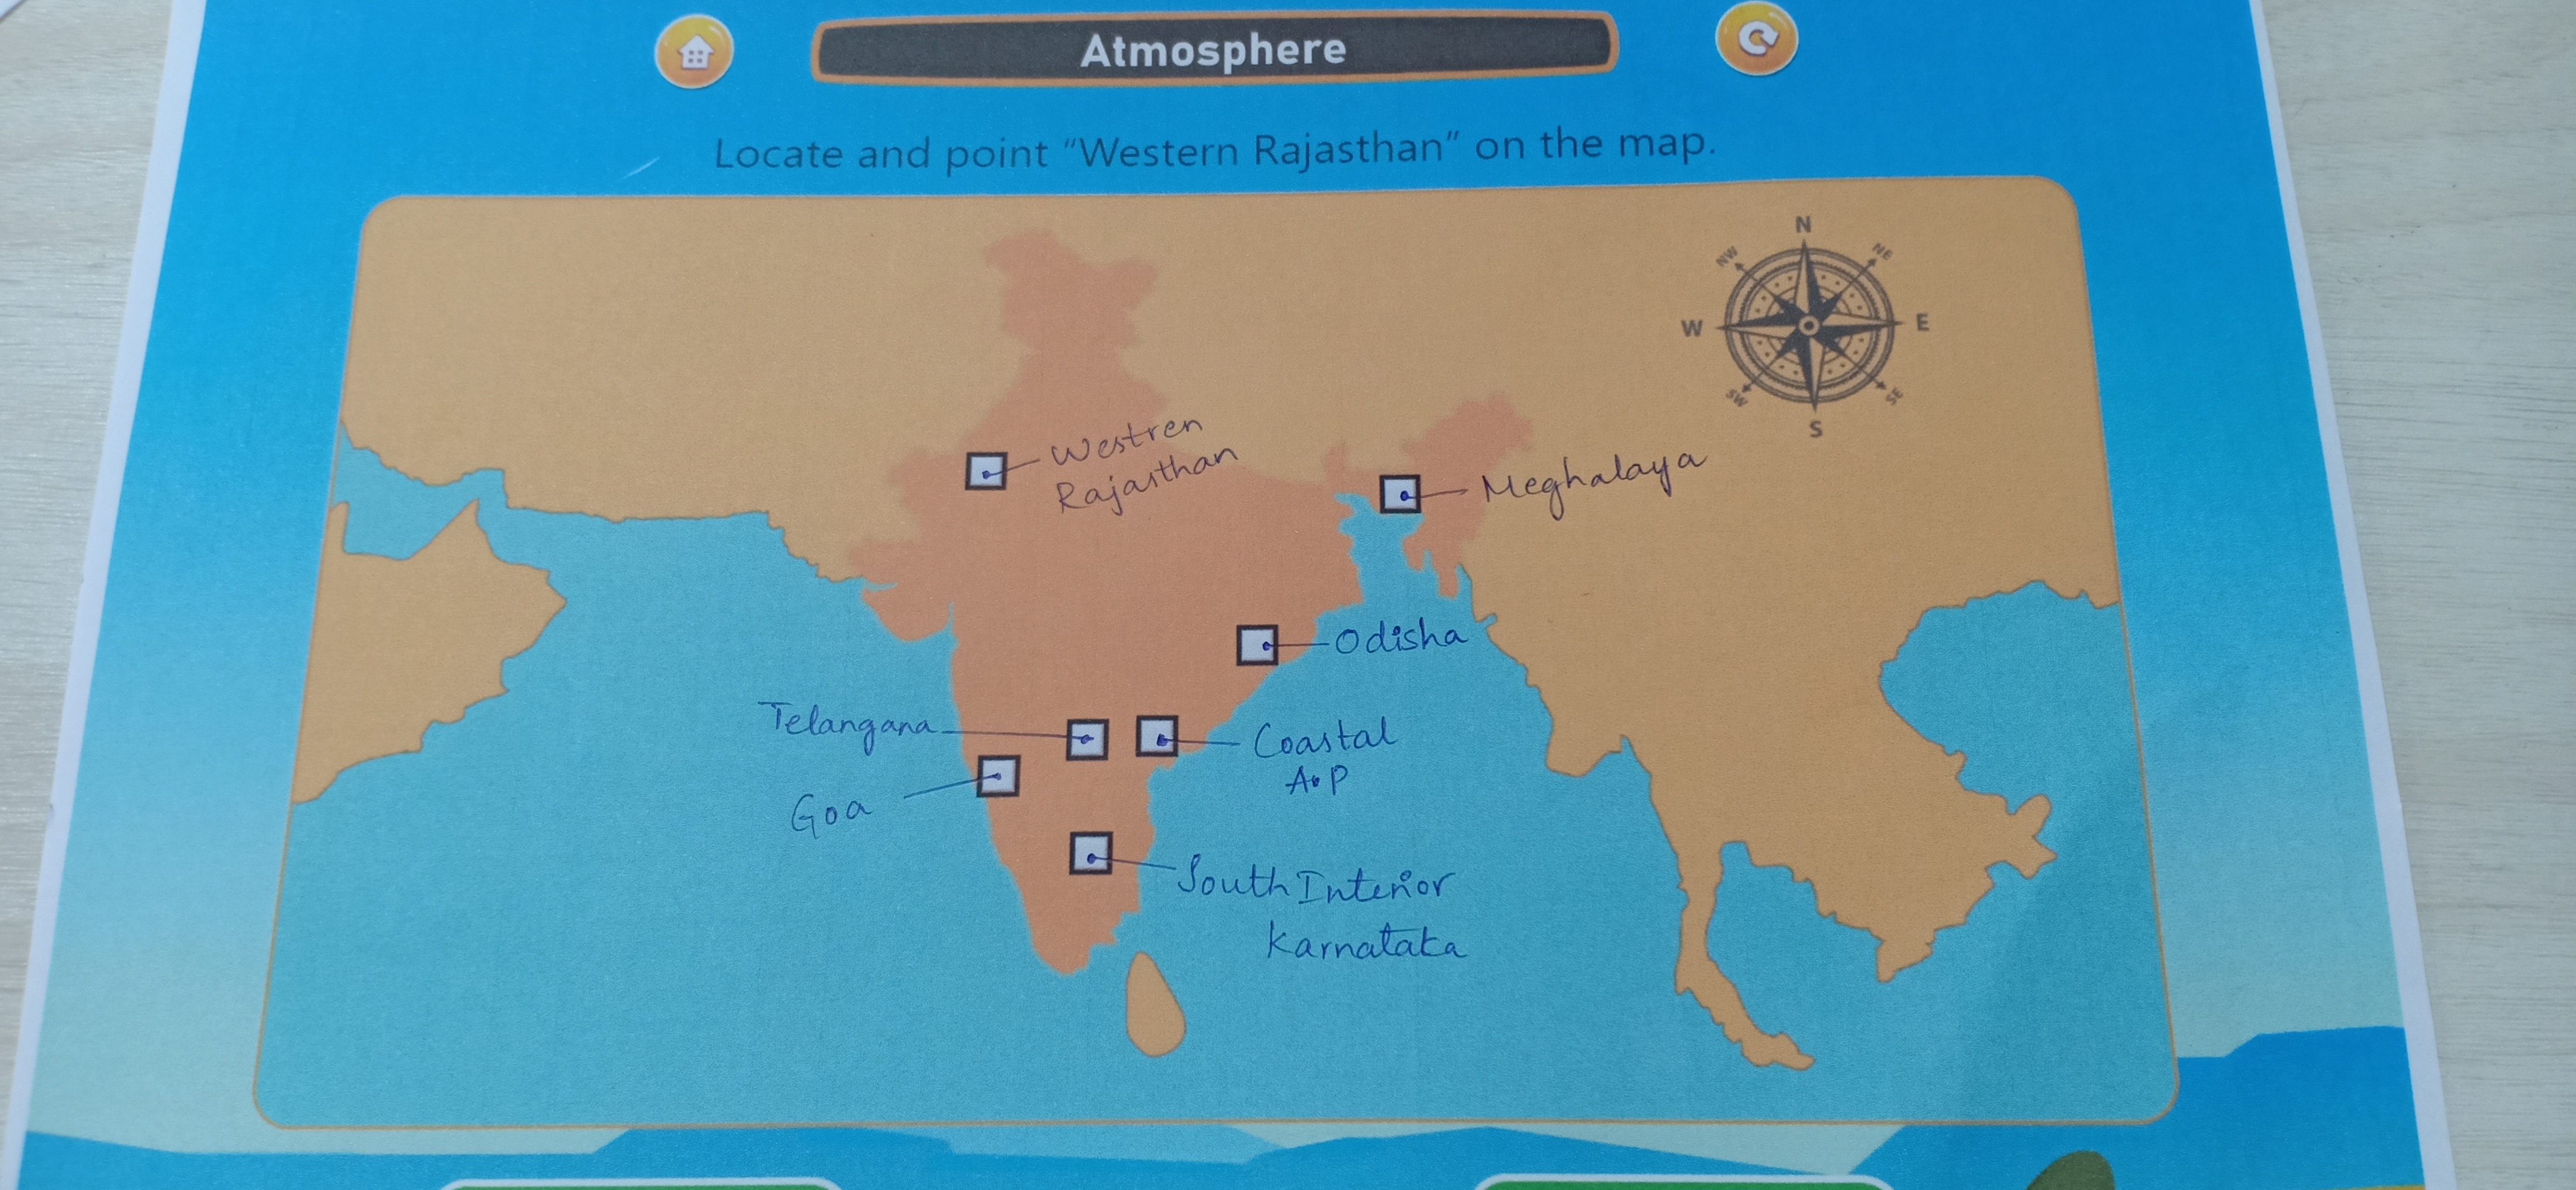 Atmosphere
Locate and point "Western Rajasthan" on the map.
N
NW
NE
W
E
SW
SE
S
Westren
Rajasthan
Meghalaya
Odisha
Telangana
Coastal
A.P
Goa
South Interior
Karnataka